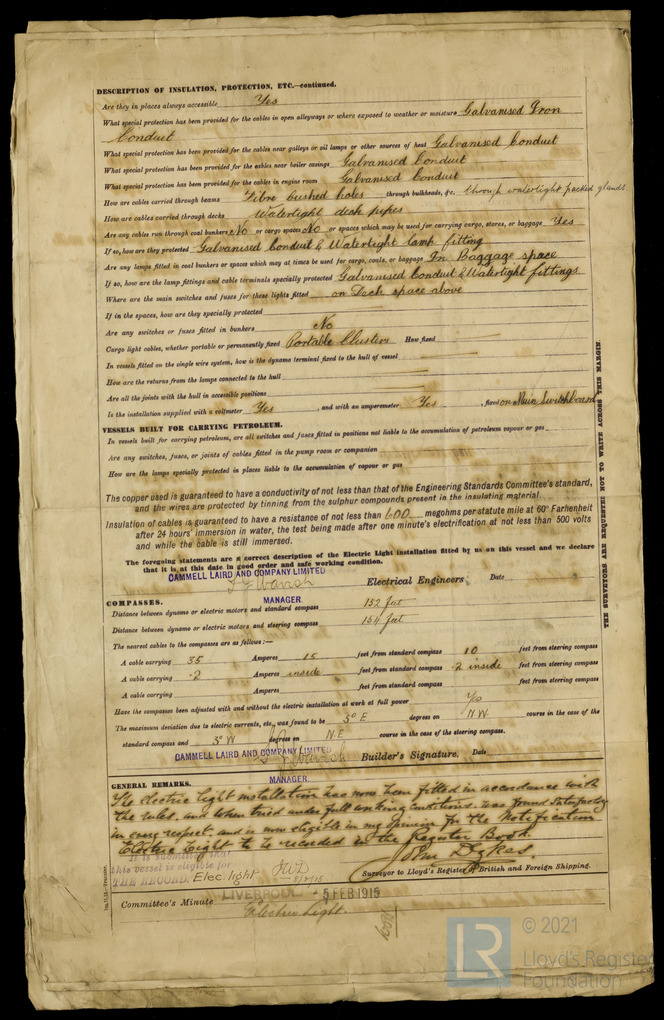 DESCRIPTION OF INSULATION, PROTECTION, ETC.—continued.
Are they in places always accessible Yes
What special protection has been provided for the cables in open alleyways or where exposed to weather or moisture Galvanised Iron
Conduit
What special protection has been provided for the cables near galleys or oil lamps or other sources of heat Galvanised Conduit
What special protection has been provided for the cables near boiler casings Galvanised Conduit
What special protection has been provided for the cables in engine room Galvanised Conduit
How are cables carried through beams Fibre bushed holes through bulkheads, &c. through watertight packed glands
How are cables carried through decks Watertight deck pipes
Are any cables run through coal bunkers No or cargo spaces No or spaces which may be used for carrying cargo, stores, or baggage Yes
If so, how are they protected Galvanised Conduit & Watertight lamp fitting
Are any lamps fitted in coal bunkers or spaces which may at times be used for cargo, coals, or baggage In Baggage space
If so, how are the lamp fittings and cable terminals specially protected Galvanised Conduit & Watertight fittings
Where are the main switches and fuses for these lights fitted on Deck space above
If in the spaces, how are they specially protected
Are any switches or fuses fitted in bunkers No
Cargo light cables, whether portable or permanently fixed Portable Clusters How fixed
In vessels fitted on the single wire system, how is the dynamo terminal fixed to the hull of vessel
How are the returns from the lamps connected to the hull
Are all the joints with the hull in accessible positions
Is the installation supplied with a voltmeter Yes , and with an amperemeter Yes , fixed on Main Switchboard
VESSELS BUILT FOR CARRYING PETROLEUM.
In vessels built for carrying petroleum, are all switches and fuses fitted in positions not liable to the accumulation of petroleum vapour or gas
Are any switches, fuses, or joints of cables fitted in the pump room or companion
How are the lamps specially protected in places liable to the accumulation of vapour or gas
The copper used is guaranteed to have a conductivity of not less than that of the Engineering Standards Committee's standard,
and the wires are protected by tinning from the sulphur compounds present in the insulating material.
Insulation of cables is guaranteed to have a resistance of not less than 600 megohms per statute mile at 60° Farhenheit
after 24 hours' immersion in water, the test being made after one minute's electrification at not less than 500 volts
and while the cable is still immersed.
The foregoing statements are a correct description of the Electric Light installation fitted by us on this vessel and we declare
that it is at this date in good order and safe working condition.
CAMMELL LAIRD AND COMPANY LIMITED
Electrical Engineers Date
MANAGER.
COMPASSES.
Distance between dynamo or electric motors and standard compass 152 feet
Distance between dynamo or electric motors and steering compass 154 feet
The nearest cables to the compasses are as follows:—
A cable carrying 35 Amperes 15 feet from standard compass 10 feet from steering compass
A cable carrying ·2 Amperes inside feet from standard compass ·2 inside feet from steering compass
A cable carrying Amperes feet from standard compass feet from steering compass
Have the compasses been adjusted with and without the electric installation at work at full power Yes
The maximum deviation due to electric currents, etc., was found to be 3° E degrees on N W course in the case of the
standard compass and 3° W degrees on N.E course in the case of the steering compass.
CAMMELL LAIRD AND COMPANY LIMITED
Builder's Signature. Date
MANAGER.
GENERAL REMARKS.
The electric light installation has now been fitted in accordance with
the rules, and when tried under full working conditions was found satisfactory
in every respect and is now eligible in my opinion for the Notification
Electric Light to be recorded in the Register Book.
John Dykes.
It is submitted that
this vessel is eligible for
THE RECORD. Elec. light
Surveyor to Lloyd's Register of British and Foreign Shipping.
LIVERPOOL - 5 FEB 1915
Committee's Minute
Electric Light.
THE SURVEYORS ARE REQUESTED NOT TO WRITE ACROSS THIS MARGIN.
© 2021
LR
Lloyd's Register
Foundation